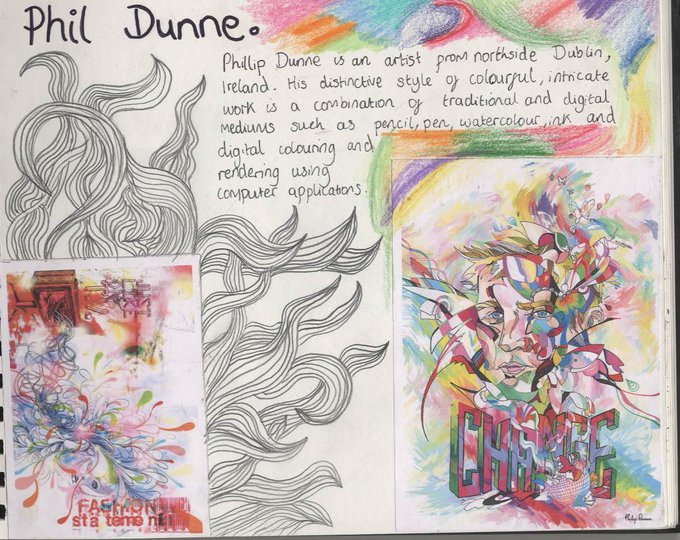 Phil Dunne.
Phillip Dunne is an artist from northside Dublin,
Ireland. His distinctive style of colourful, intricate
work is a combination of traditional and digital
mediums such as pencil, pen, watercolour, ink and
digital colouring and
rendering using
computer applications.
CHANGE
FASHION
statement